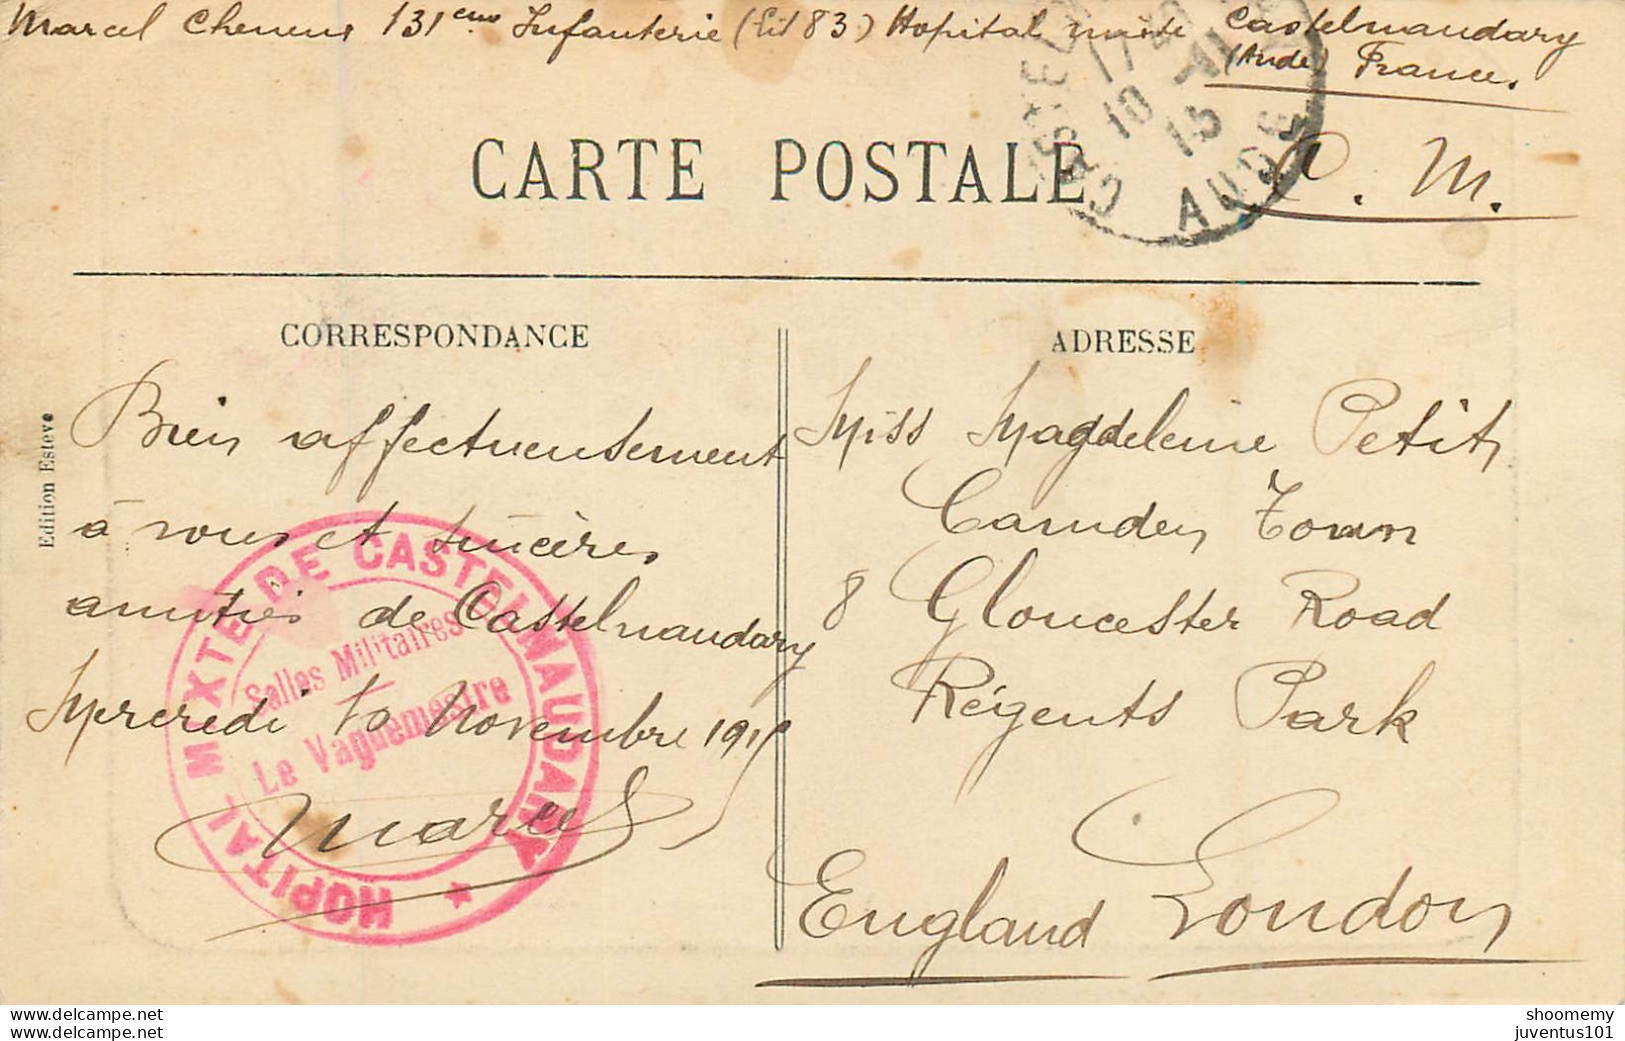 Marcel 131eme Infanterie (Lit 83) Hopital mixte Castelnaudary
(Aude) France.
CARTE POSTALE
F. M.
CASTELNAUDARY AUDE
10 - 11
15
CORRESPONDANCE
ADRESSE
Edition Esteve
Bien affectueusement
à vous et sincères
amitiés de Castelnaudary
Mercredi 10 Novembre 1915
Marcel
HOPITAL MIXTE DE CASTELNAUDARY
Salles Militaires
Le Vaguemestre
Miss Magdeleine Petit
Camden Town
8 Gloucester Road
Régents Park
England London
shoomemy
juventus101